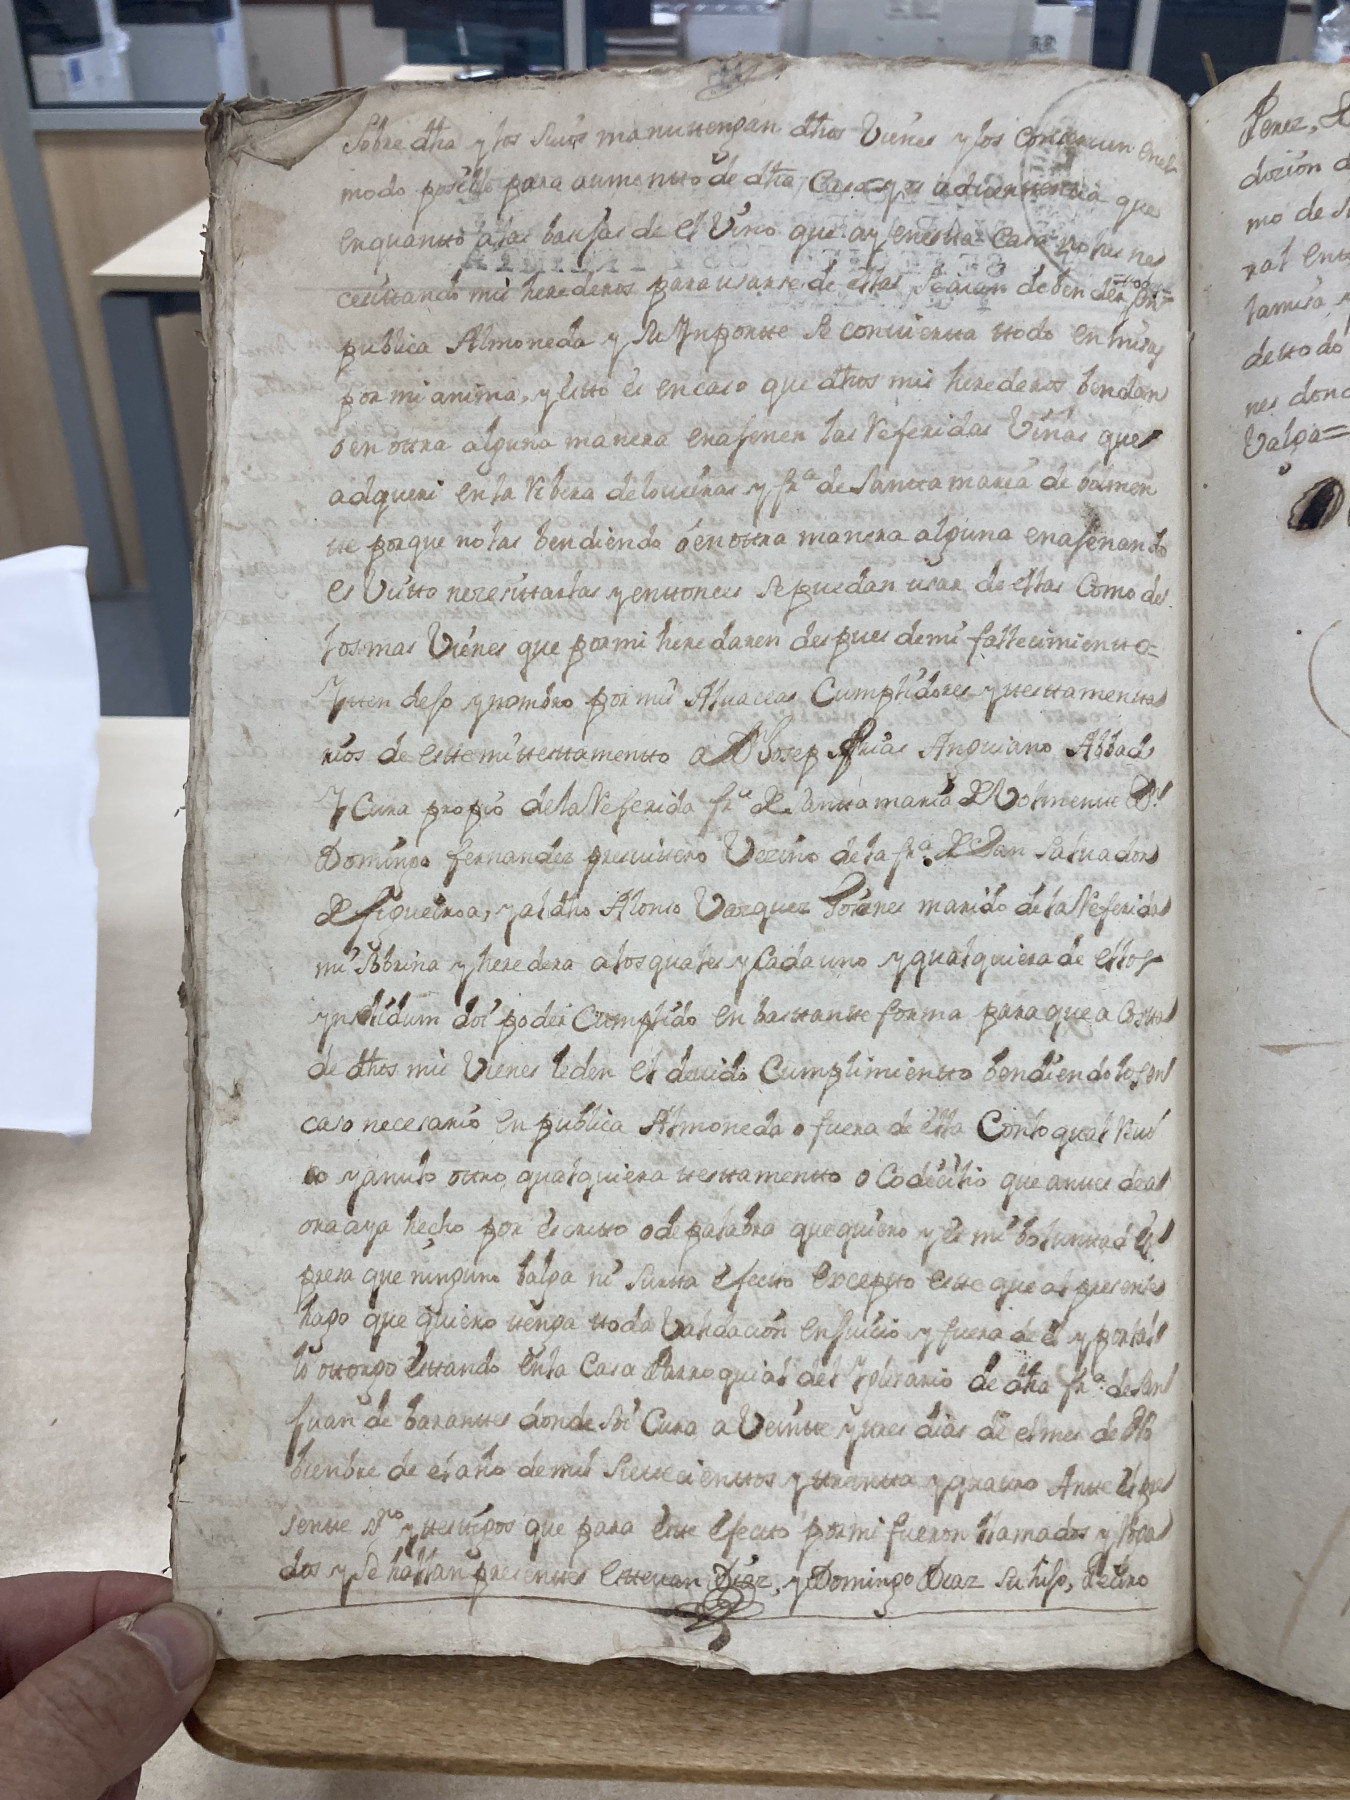 Sobre dha y los Suios manuttengan dhos Vienes y los Conserven enel
modo posible para aumentto de dha Casa y se adviertta que
enquantto a las basijas de el Vino que ay enestta Casa no las ne
cesittando mis herederos para usarse de ellas Se aian de bender en
publica Almoneda y Su Ynportte Se convierta ttodo en misas
por mi anima, y estto es en caso que dhos mis herederos bendan
o en ottra alguna manera enajenen las Referidas Viñas que
adqueri en la Ribera de y frª de Santta maria de bolmen
tte porque no las bendiendo o en ottra manera alguna enajenando
es Vistto necesittarlas y enttonces Se puedan usar de ellas Como de
los mas Vienes que por mi heredaren despues de mi fallecimientto=
Ytten dejo y nombro por mis Alvaceas Cumplidores y testtamentta
rios de estte mi testtamentto a Dn Josep Arias Anguiano Abbad
Y Cura propio de la Referida frª de Santta maria de Volmentte Dn
Domingo fernandez presvittero Vezino de la frª. de San Salvador
de figueiroa, y al dho Alonso Vazquez marido de la Referida
mi Sobrina y heredera a los quales y Cada uno y qualquiera de ellos
ynsolidum doi poder Cumplido en basttantte forma para que a Costta
de dhos mis Vienes le den el devido Cumplimientto bendiendolos en
caso necesario en publica Almoneda o fuera de ella Con lo qual Revo
co y anulo ottro qualquiera testtamentto o Codicilio que antes de a
ora aya hecho por escritto o de palabra que quiero y es mi boluntta d es
presa que ninguno balga ni Surtta efectto Excepto estte que al presentte
hago que quiero ttenga ttoda Validacion en Juicio y fuera de el y por tal
lo ottorgo esttando en la Casa Parroquial del Yglesario de dha frª. de San
Juan de barantes donde Soi Cura a Veintte y tres dias de el mes de No
bienbre de el año de mil Settecienttos y ttreintta y quatro Antte el pre
sentte SSno y testtigos que para estte Efectto por mi fueron llamados y Roga
dos y Se hallan presenttes Esttevan Diaz, y Domingo Diaz Su hijo, Pedro
Perez, D
dozion d
mo de S
ral ent
tamisa
de ttodo
nes dond
Valga=